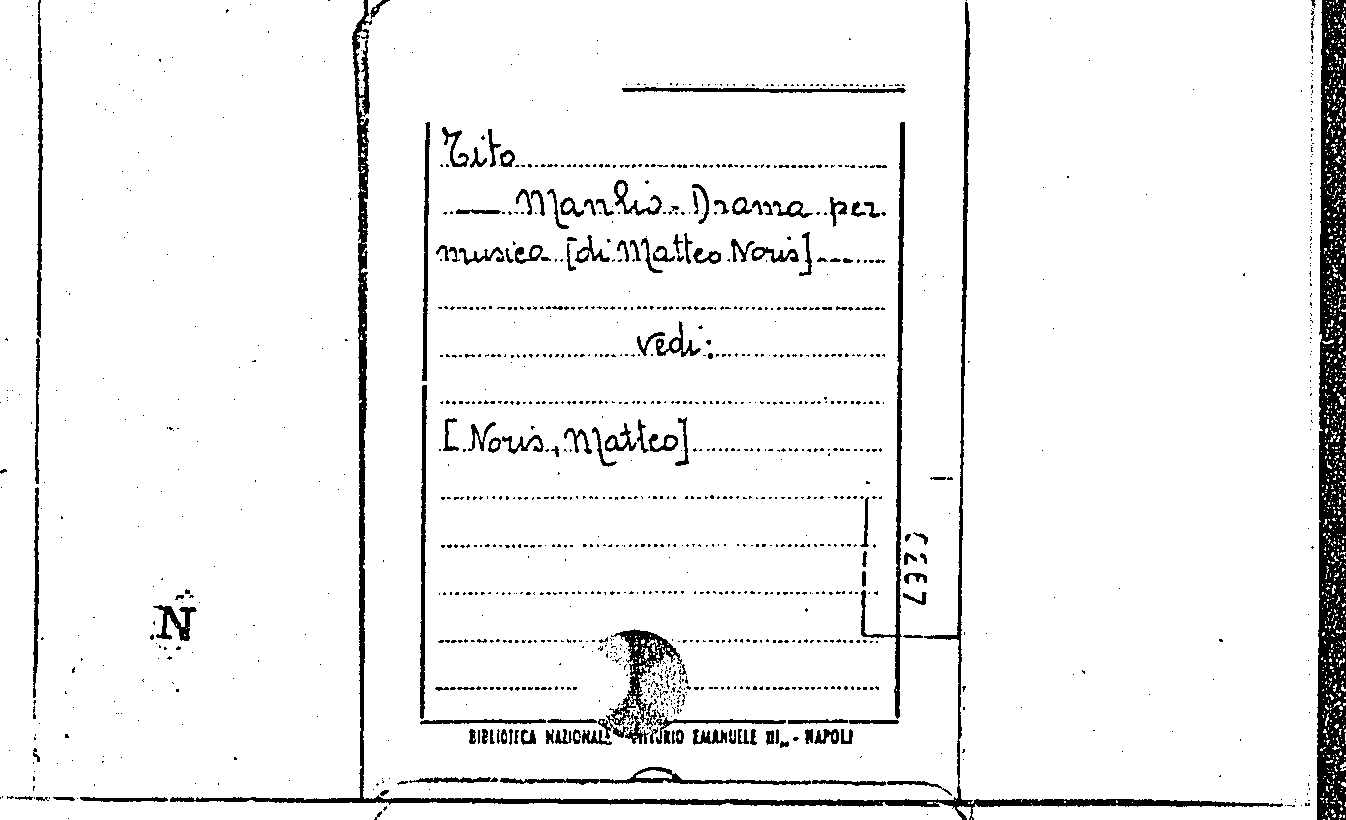 Tito
— Manlio - Drama per
musica [di Matteo Noris] ---
vedi:
[Noris, Matteo]
N
BIBLIOTECA NAZIONALE VITTORIO EMANUELE III,, - NAPOLI